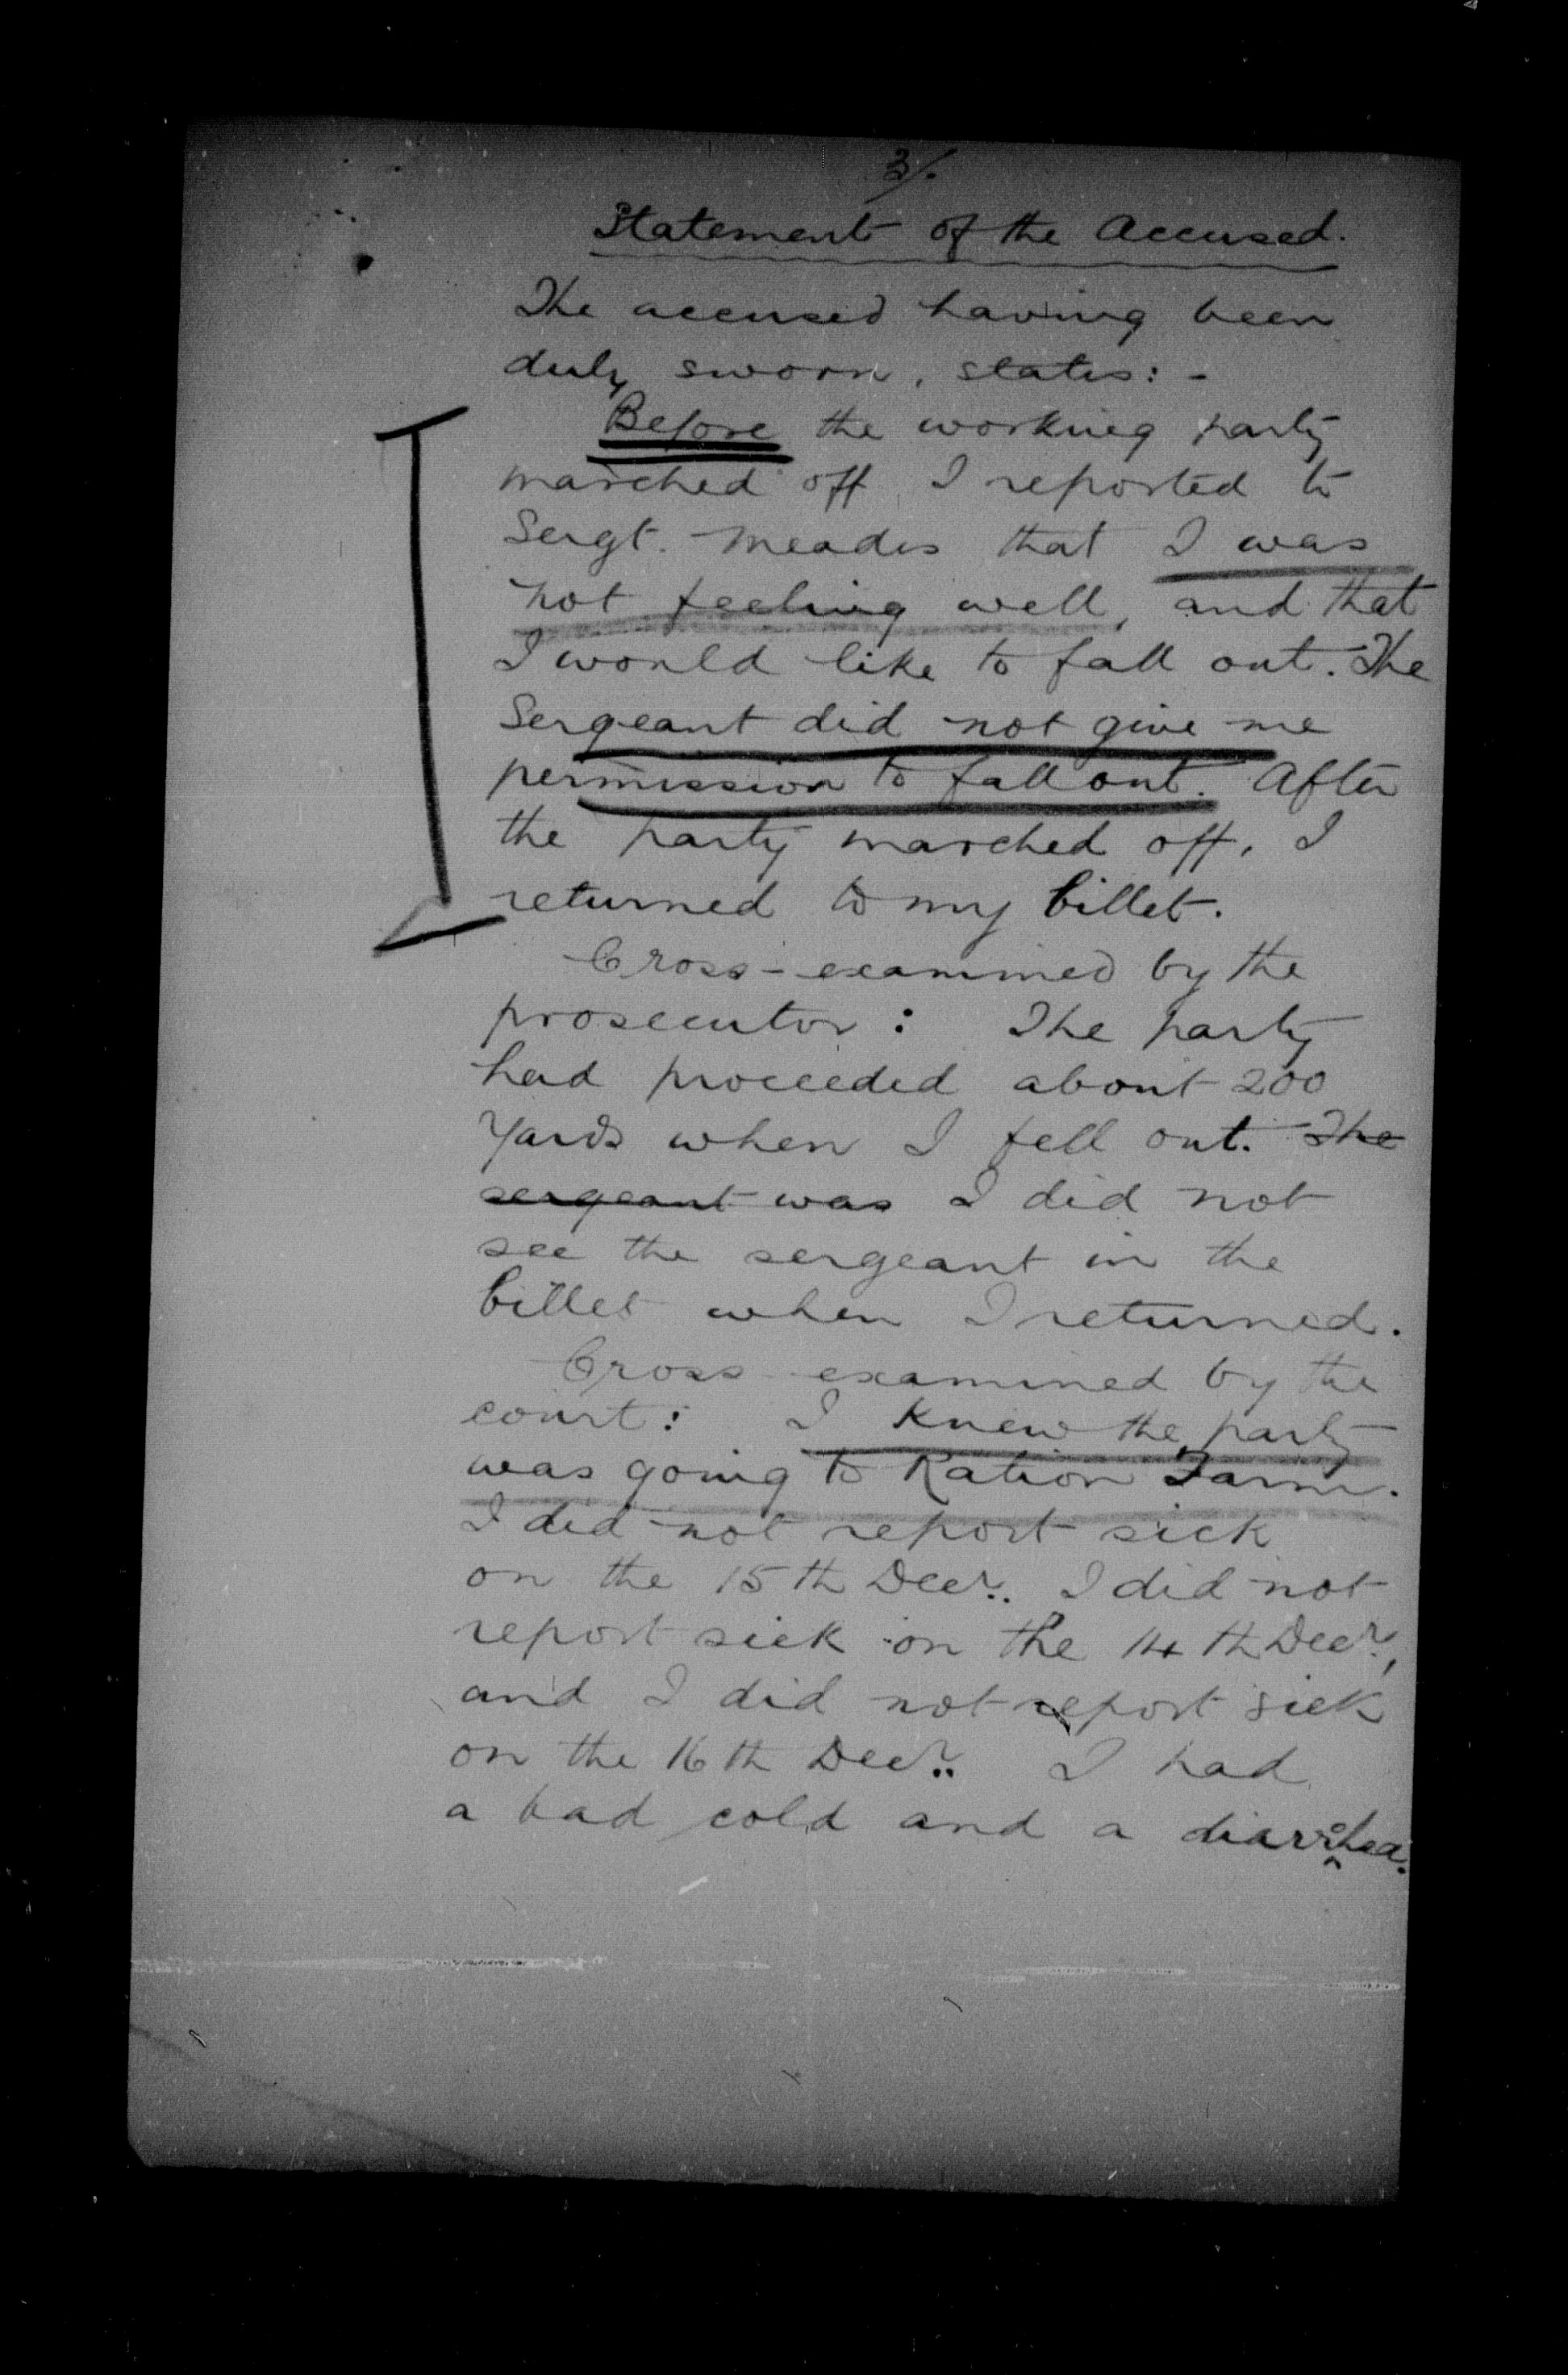 3/.
Statement of the Accused.
The accused having been
duly sworn, states: -
Before the working party
marched off I reported to
Sergt. Meades that I was
not feeling well, and that
I would like to fall out. The
Sergeant did not give me
permission to fall out. After
the party marched off, I
returned to my billet.
Cross-examined by the
prosecutor: The party
had proceeded about 200
Yards when I fell out. The
sergeant was I did not
see the sergeant in the
billet when I returned.
Cross examined by the
court: I knew the party
was going to Ration Farm.
I did not report sick
on the 15th Decr. I did not
report sick on the 14th Decr,
and I did not report sick
on the 16th Decr. I had
a bad cold and a diarrohea.